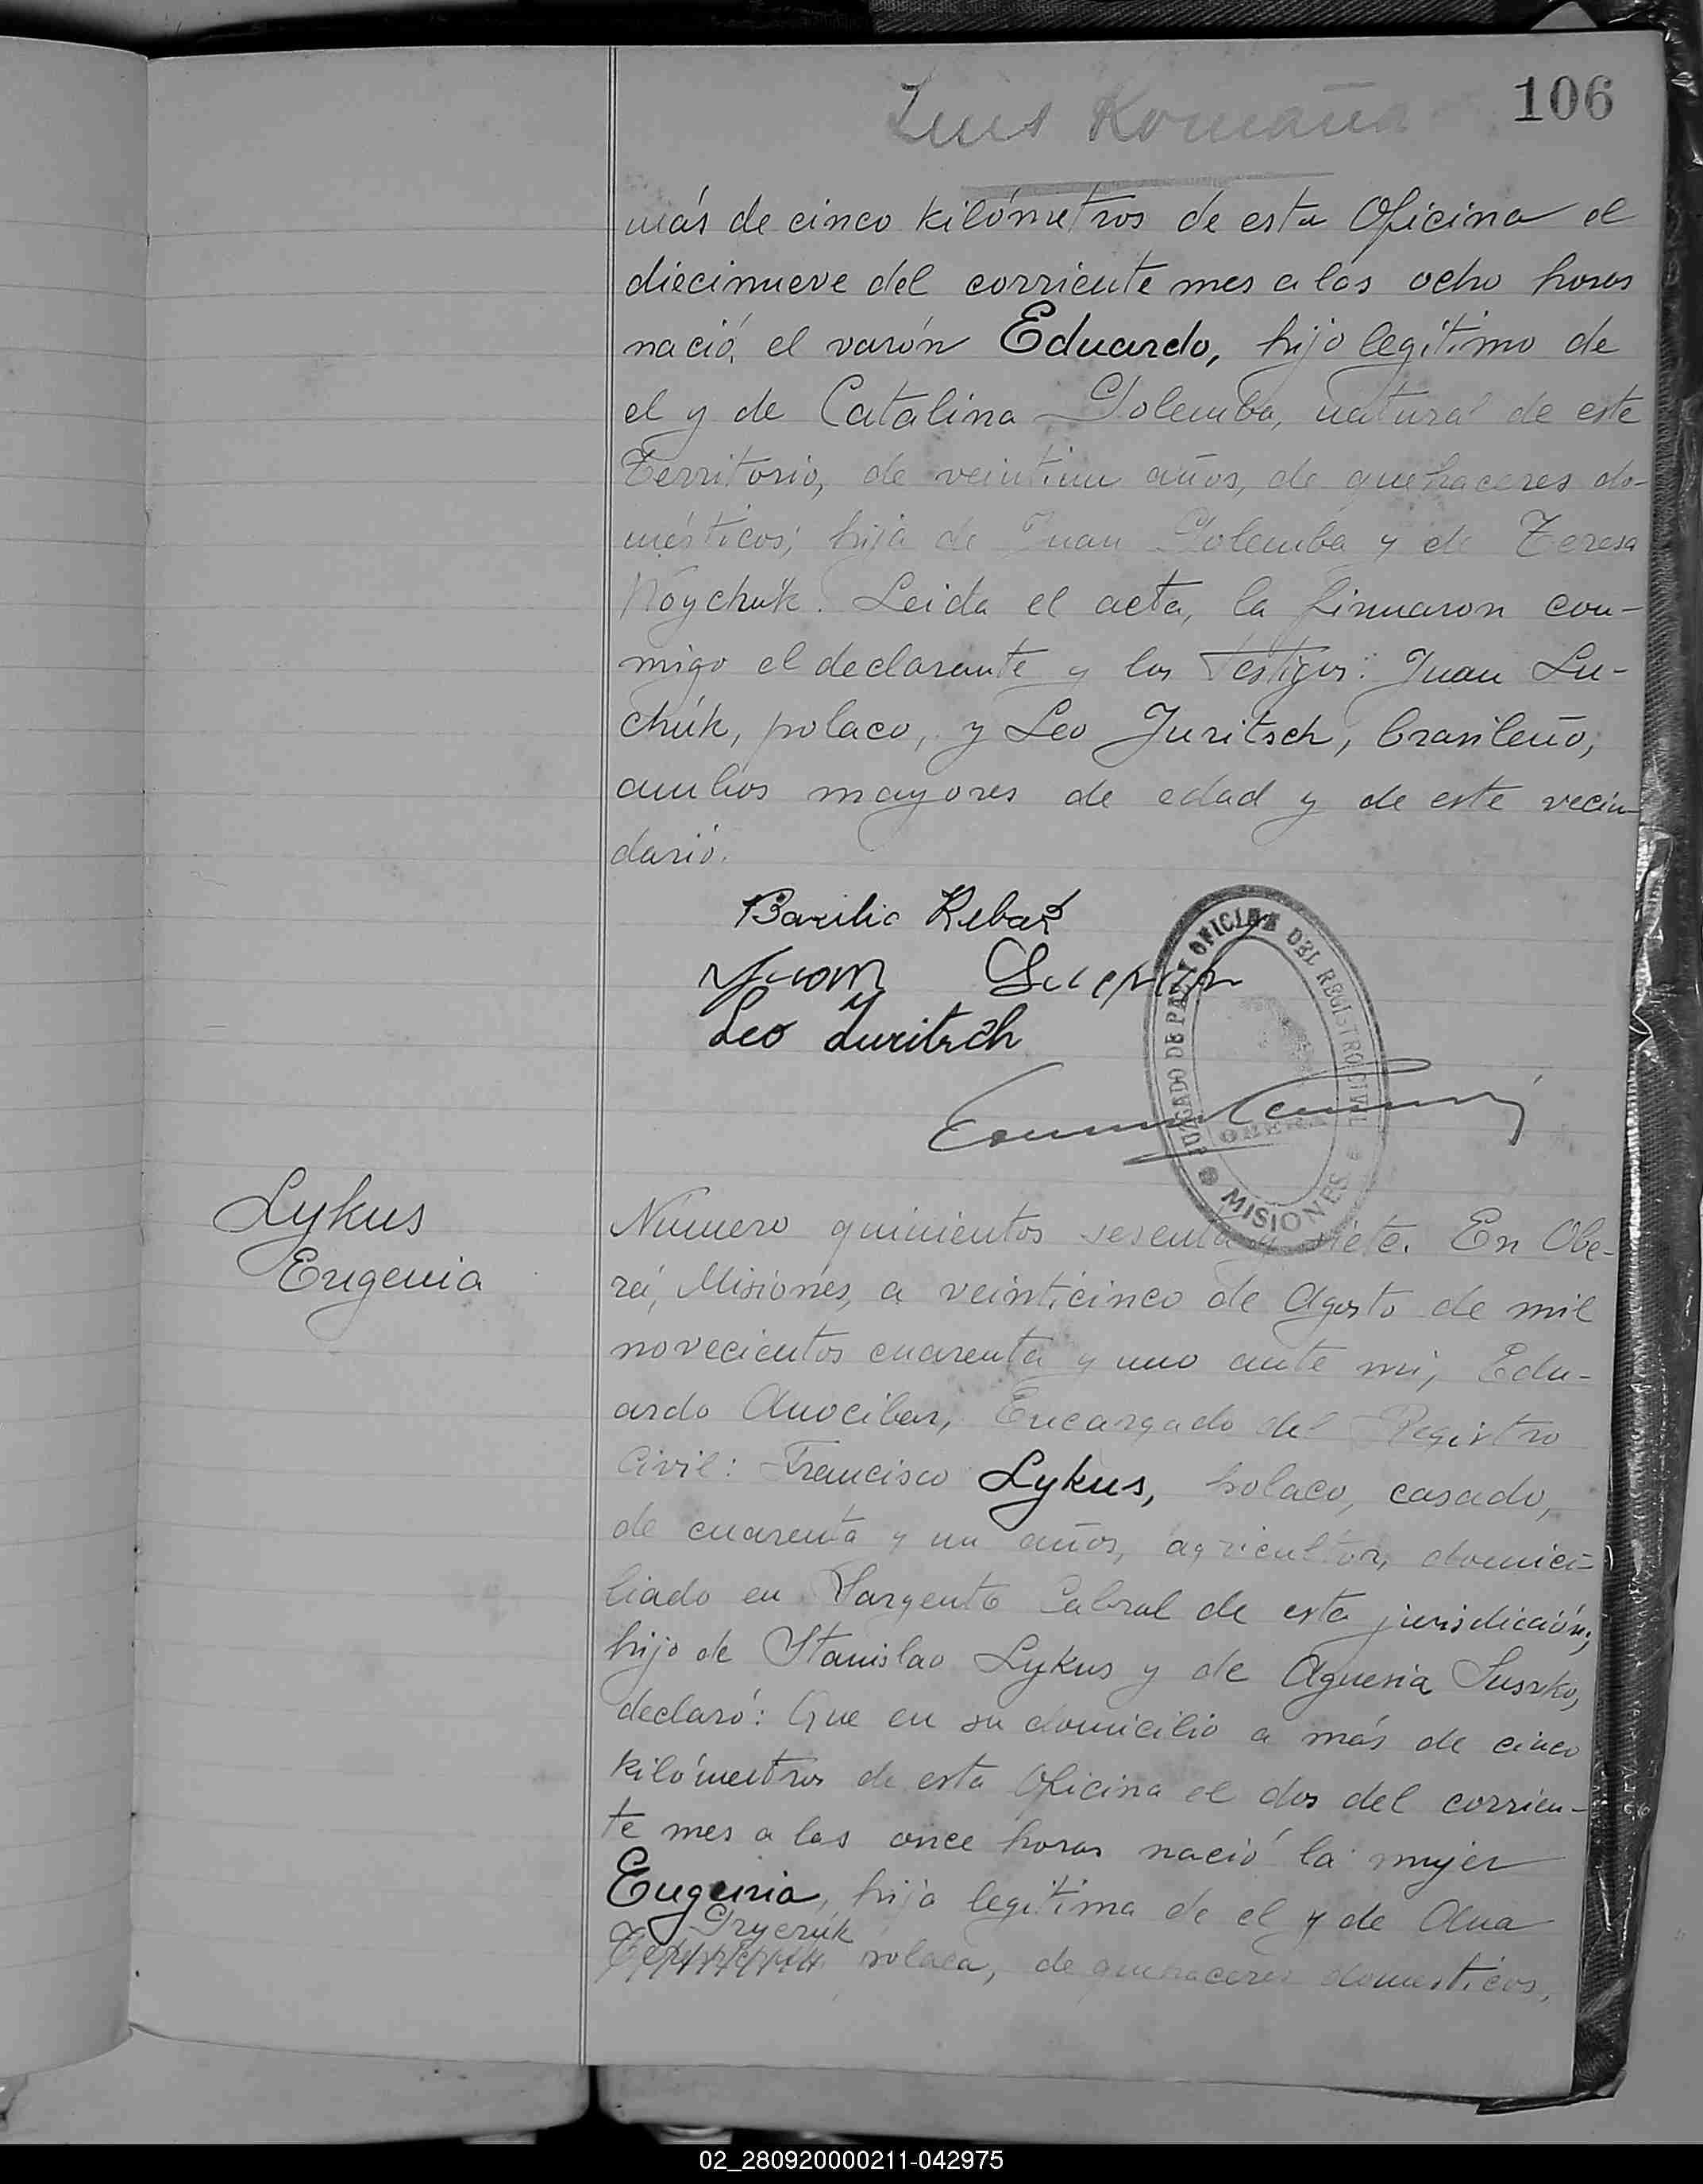 106
Luis Romaña
más de cinco kilómetros de esta Oficina el
diecinueve del corriente mes a las ocho horas
nació el varón Eduardo, hijo legítimo de
el y de Catalina Golemba, natural de este
Territorio, de veintiun años, de quehaceres do-
mésticos; hija de Juan Golemba y de Teresa
Woychuk. Leida el acta, la firmaron con-
migo el declarante y los testigos: Juan Lu-
chuk, polaco, y Leo Juritsch, brasileño;
ambos mayores de edad y de este vecin-
dario.
Basilio
Juan
Leo Juritsch
JUZGADO DE PAZ Y OFICINA DEL REGISTRO CIVIL
OBERA
MISIONES
Lykus
Eugenia
Número quinientos sesenta y siete. En Obe-
rá, Misiones, a veinticinco de Agosto de mil
novecientos cuarenta y uno ante mi, Edu-
ardo Anocibar, Encargado del Registro
Civil: Francisco Lykus, polaco, casado,
de cuarenta y un años, agricultor, domici-
liado en Sargento Cabral de esta jurisdicción;
hijo de Stanislao Lykus y de Agnesia Suszko,
declaró: Que en su domicilio a más de cinco
kilómetros de esta Oficina el dos del corrien-
te mes a las once horas nació la mujer
Eugenia, hija legítima de el y de Ana
Gryczuk
polaca, de quehaceres domésticos,
02_280920000211-042975